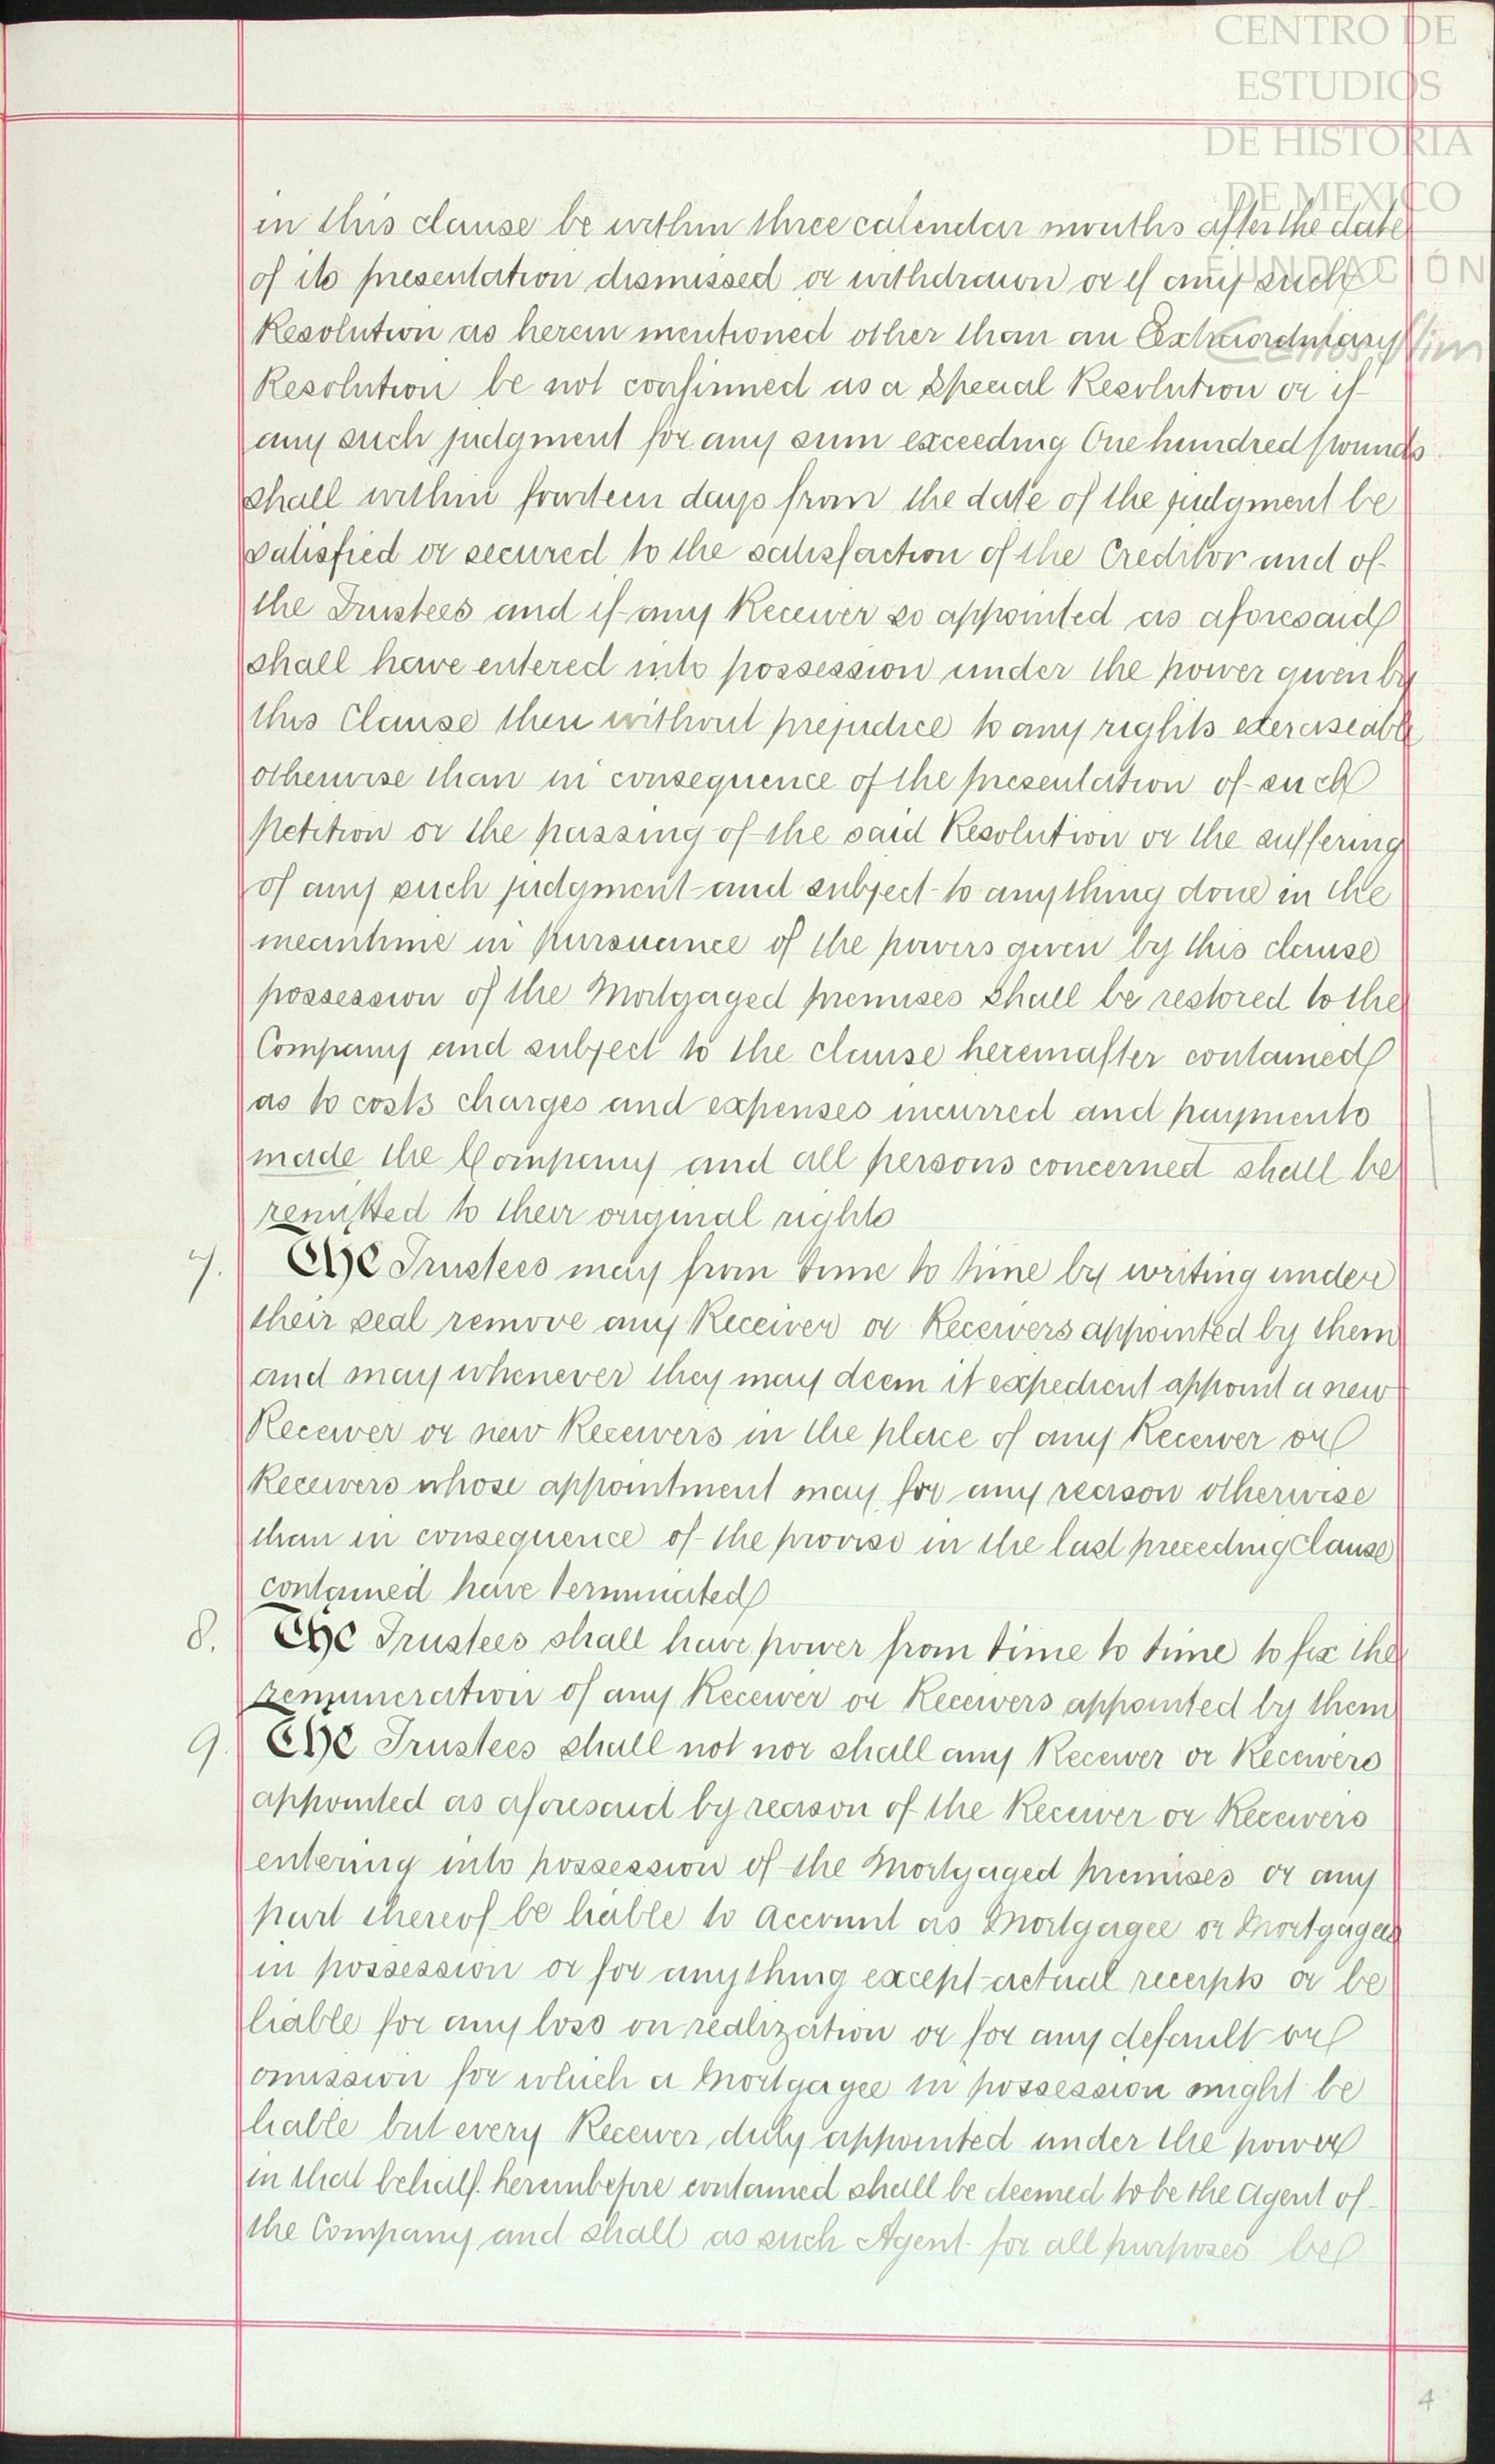 CENTRO DE
ESTUDIOS
DE HISTORIA
DE MEXICO
FUNDACIÓN
Carlos Slim
in this clause be within three calendar months after the date
of its presentation dismissed or withdrawn or if any such
Resolution as herein mentioned other than an Extraordinary
Resolution be not confirmed as a Special Resolution or if
any such judgment for any sum exceeding One hundred pounds
shall within fourteen days from the date of the judgment be
satisfied or secured to the satisfaction of the Creditor and of
the Trustees and if any Receiver so appointed as aforesaid
shall have entered into possession under the power given by
this Clause then without prejudice to any rights exerciseable
otherwise than in consequence of the presentation of such
petition or the passing of the said Resolution or the suffering
of any such judgment and subject to anything done in the
meantime in pursuance of the powers given by this clause
possession of the Mortgaged premises shall be restored to the
Company and subject to the clause hereinafter contained
as to costs charges and expenses incurred and payments
made the Company and all persons concerned shall be
remitted to their original rights
7. The Trustees may from time to time by writing under
their seal remove any Receiver or Receivers appointed by them
and may whenever they may deem it expedient appoint a new
Receiver or new Receivers in the place of any Receiver or
Receivers whose appointment may for any reason otherwise
than in consequence of the proviso in the last preceding Clause
contained have terminated
8. The Trustees shall have power from time to time to fix the
remuneration of any Receiver or Receivers appointed by them
9. The Trustees shall not nor shall any Receiver or Receivers
appointed as aforesaid by reason of the Receiver or Receivers
entering into possession of the Mortgaged premises or any
part thereof be liable to account as Mortgagee or Mortgagees
in possession or for anything except actual receipts or be
liable for any loss on realization or for any default or
omission for which a Mortgagee in possession might be
liable but every Receiver duly appointed under the power
in that behalf hereinbefore contained shall be deemed to be the Agent of
the Company and shall as such Agent for all purposes be
4